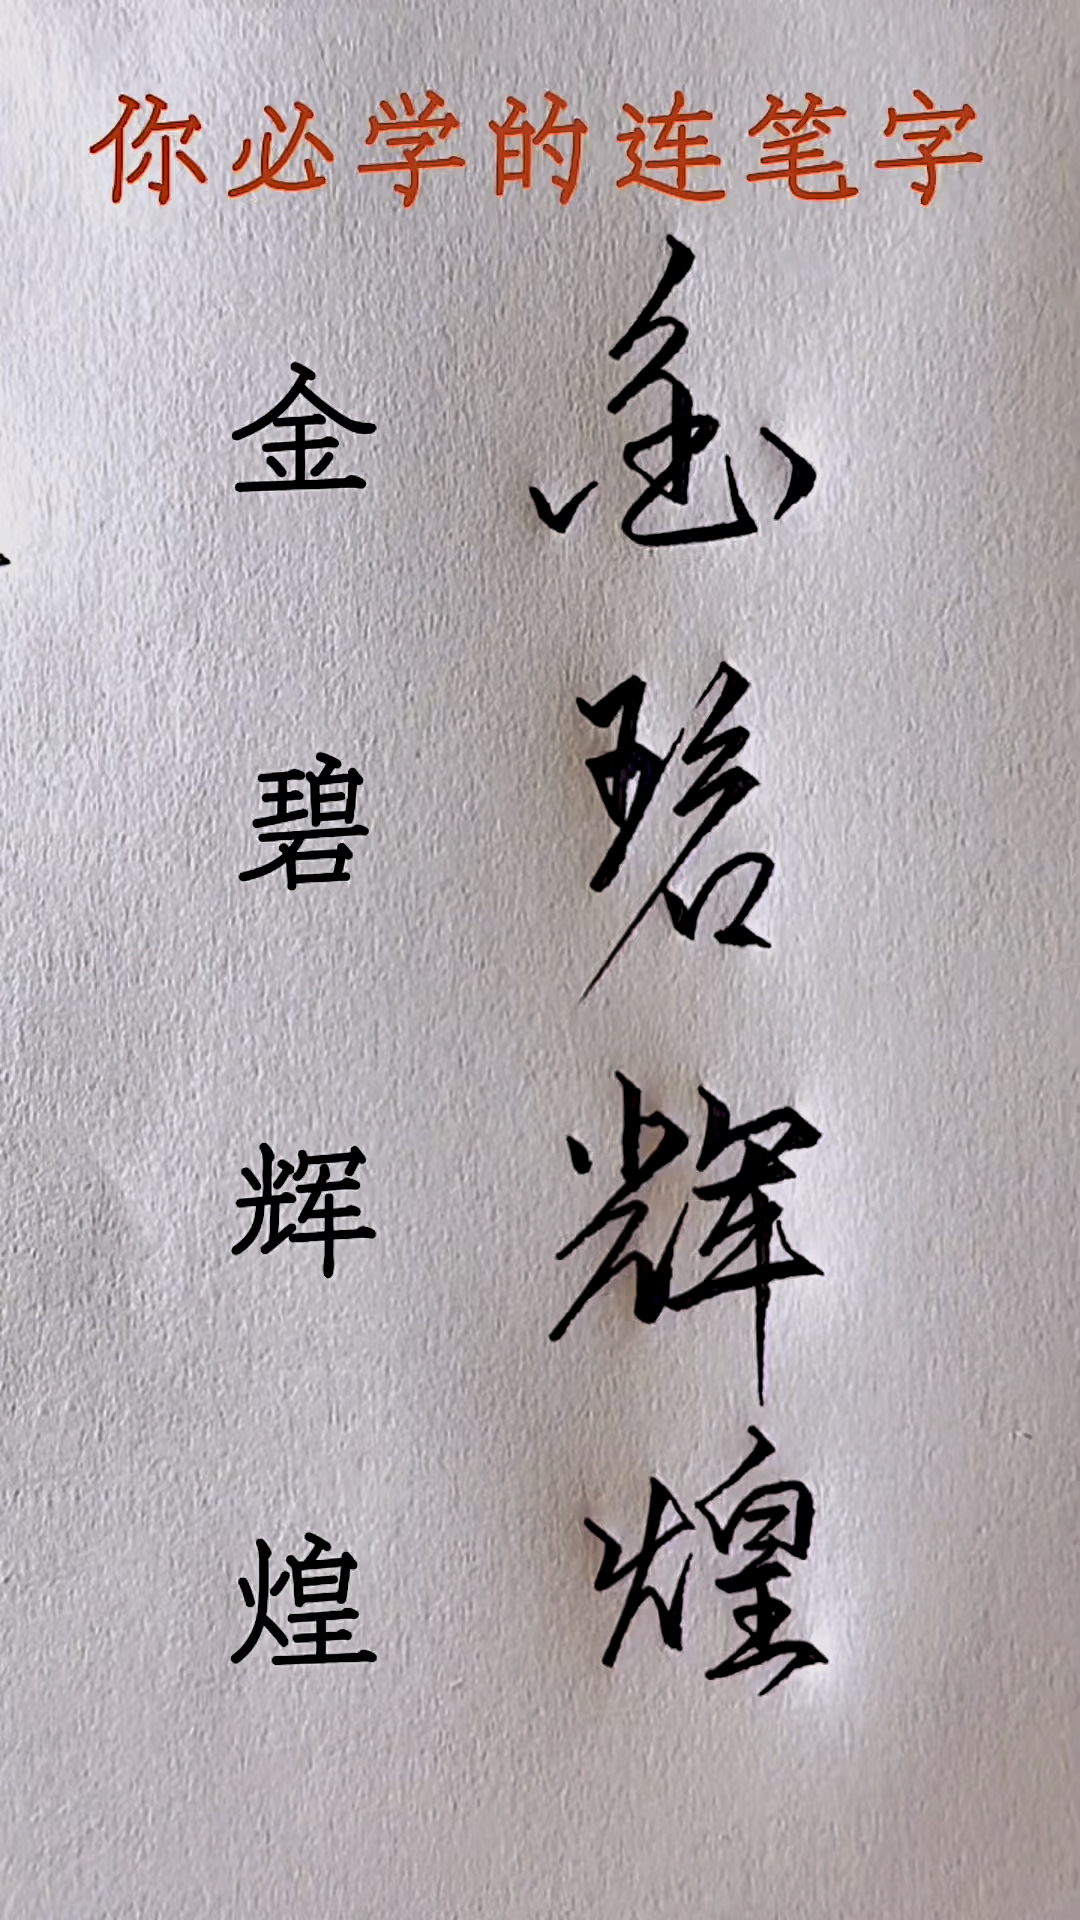 你必学的连笔字
金 金
碧 碧
辉 辉
煌 煌